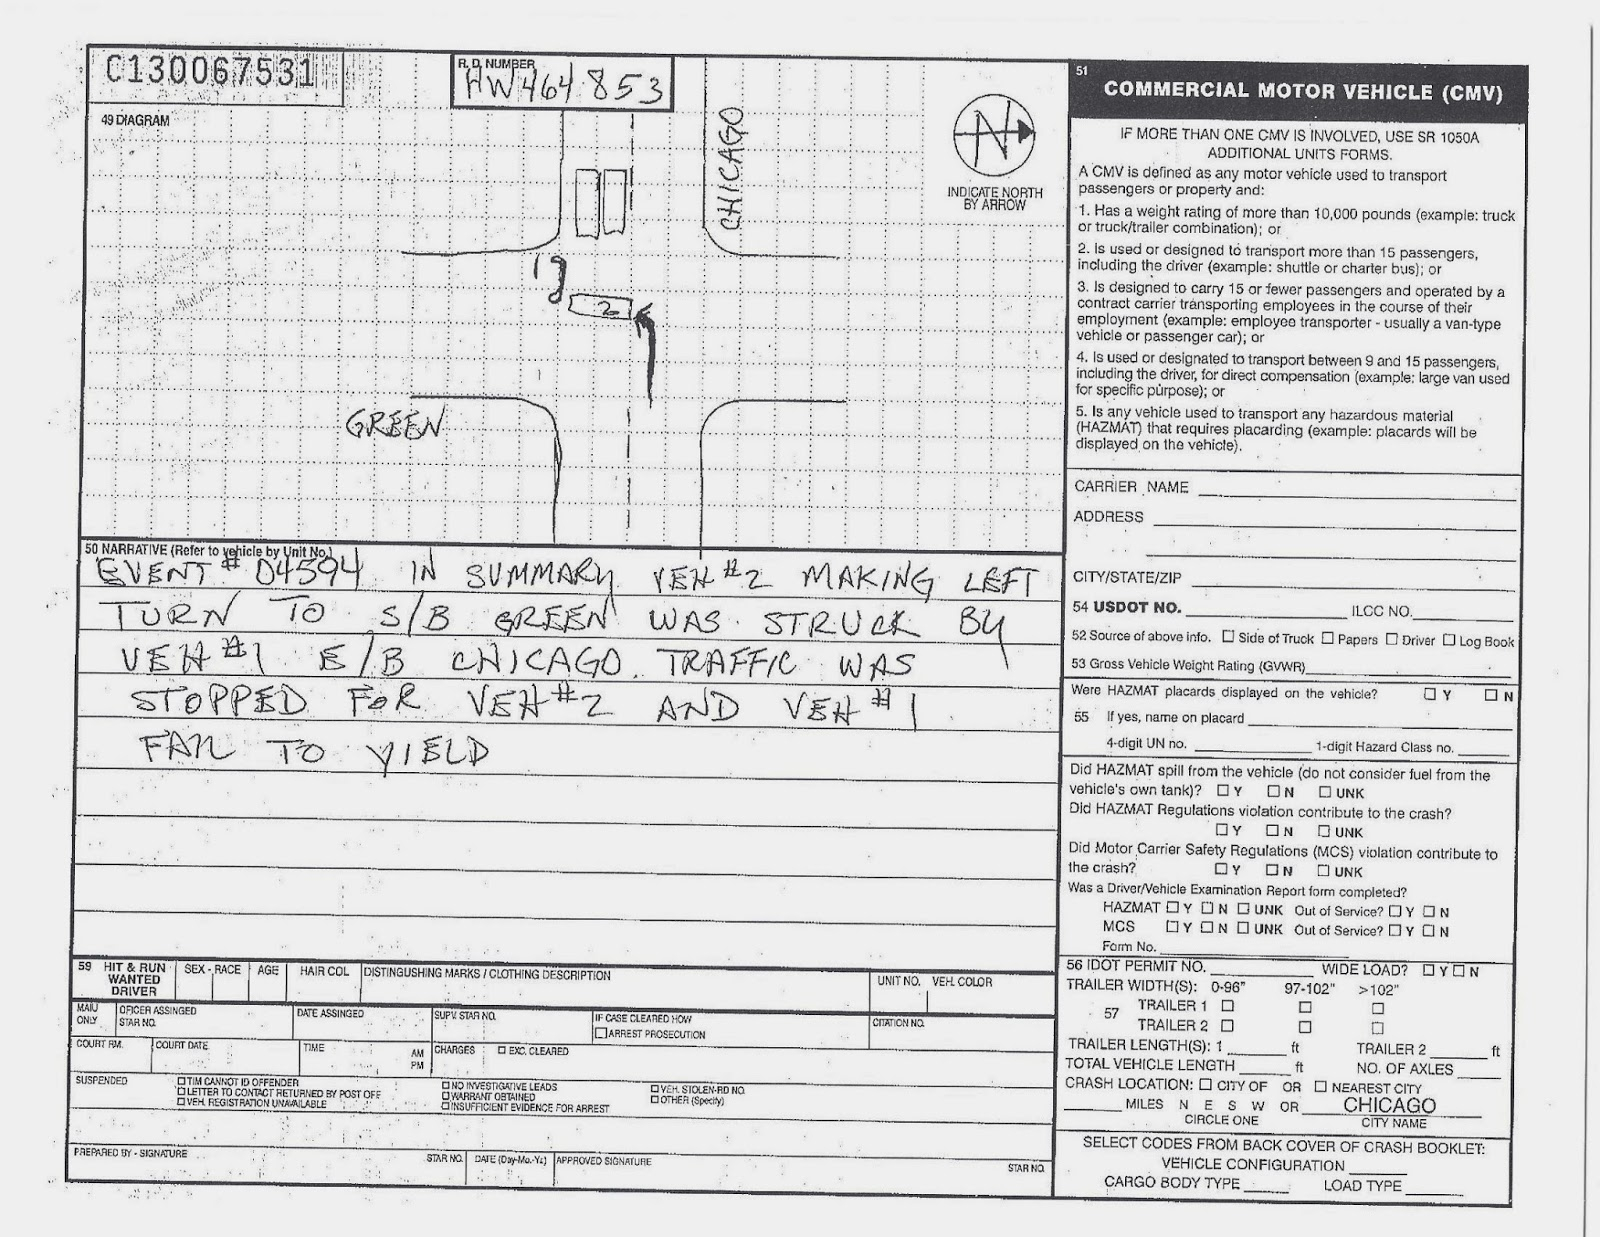 C130067531
R.D. NUMBER
HW464853
49 DIAGRAM
CHICAGO
N
INDICATE NORTH
BY ARROW
1
2
GREEN
50 NARRATIVE (Refer to vehicle by Unit No.)
EVENT # 04594 IN SUMMARY VEH #2 MAKING LEFT
TURN TO S/B GREEN WAS STRUCK BY
VEH #1 E/B CHICAGO. TRAFFIC WAS
STOPPED FOR VEH #2 AND VEH #1
FAIL TO YIELD
59 HIT & RUN WANTED DRIVER
SEX - RACE AGE HAIR COL DISTINGUSHING MARKS / CLOTHING DESCRIPTION UNIT NO. VEH. COLOR
MAIU ONLY
OFICER ASSINGED STAR NO. DATE ASSINGED SUPV. STAR NO. IF CASE CLEARED HOW CITATION NO.
☐ ARREST PROSECUTION
COURT RM. COURT DATE TIME AM PM CHARGES ☐ EXC. CLEARED
SUSPENDED
☐ TIM CANNOT ID OFFENDER ☐ NO INVESTIGATIVE LEADS ☐ VEH. STOLEN-RD NO.
☐ LETTER TO CONTACT RETURNED BY POST OFF ☐ WARRANT OBTAINED ☐ OTHER (Specify)
☐ VEH. REGISTRATION UNAVAILABLE ☐ INSUFFICIENT EVIDENCE FOR ARREST
PREPARED BY - SIGNATURE STAR NO. DATE (Day-Mo.-Yr.) APPROVED SIGNATURE STAR NO.
51
COMMERCIAL MOTOR VEHICLE (CMV)
IF MORE THAN ONE CMV IS INVOLVED, USE SR 1050A
ADDITIONAL UNITS FORMS.
A CMV is defined as any motor vehicle used to transport
passengers or property and:
1. Has a weight rating of more than 10,000 pounds (example: truck
or truck/trailer combination); or
2. Is used or designed to transport more than 15 passengers,
including the driver (example: shuttle or charter bus); or
3. Is designed to carry 15 or fewer passengers and operated by a
contract carrier transporting employees in the course of their
employment (example: employee transporter - usually a van-type
vehicle or passenger car); or
4. Is used or designated to transport between 9 and 15 passengers,
including the driver, for direct compensation (example: large van used
for specific purpose); or
5. Is any vehicle used to transport any hazardous material
(HAZMAT) that requires placarding (example: placards will be
displayed on the vehicle).
CARRIER NAME
ADDRESS
CITY/STATE/ZIP
54 USDOT NO. ILCC NO.
52 Source of above info. ☐ Side of Truck ☐ Papers ☐ Driver ☐ Log Book
53 Gross Vehicle Weight Rating (GVWR)
Were HAZMAT placards displayed on the vehicle? ☐ Y ☐ N
55 If yes, name on placard
4-digit UN no. 1-digit Hazard Class no.
Did HAZMAT spill from the vehicle (do not consider fuel from the
vehicle's own tank)? ☐ Y ☐ N ☐ UNK
Did HAZMAT Regulations violation contribute to the crash?
☐ Y ☐ N ☐ UNK
Did Motor Carrier Safety Regulations (MCS) violation contribute to
the crash? ☐ Y ☐ N ☐ UNK
Was a Driver/Vehicle Examination Report form completed?
HAZMAT ☐ Y ☐ N ☐ UNK Out of Service? ☐ Y ☐ N
MCS ☐ Y ☐ N ☐ UNK Out of Service? ☐ Y ☐ N
Form No.
56 IDOT PERMIT NO. WIDE LOAD? ☐ Y ☐ N
TRAILER WIDTH(S): 0-96" 97-102" >102"
57 TRAILER 1 ☐ ☐ ☐
TRAILER 2 ☐ ☐ ☐
TRAILER LENGTH(S): 1 ft TRAILER 2 ft
TOTAL VEHICLE LENGTH ft NO. OF AXLES
CRASH LOCATION: ☐ CITY OF OR ☐ NEAREST CITY
MILES N E S W OR CHICAGO
CIRCLE ONE CITY NAME
SELECT CODES FROM BACK COVER OF CRASH BOOKLET:
VEHICLE CONFIGURATION
CARGO BODY TYPE LOAD TYPE